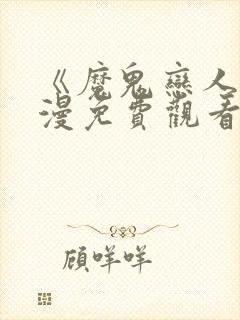 《魔鬼戀人
漫免費觀看
顧咩咩